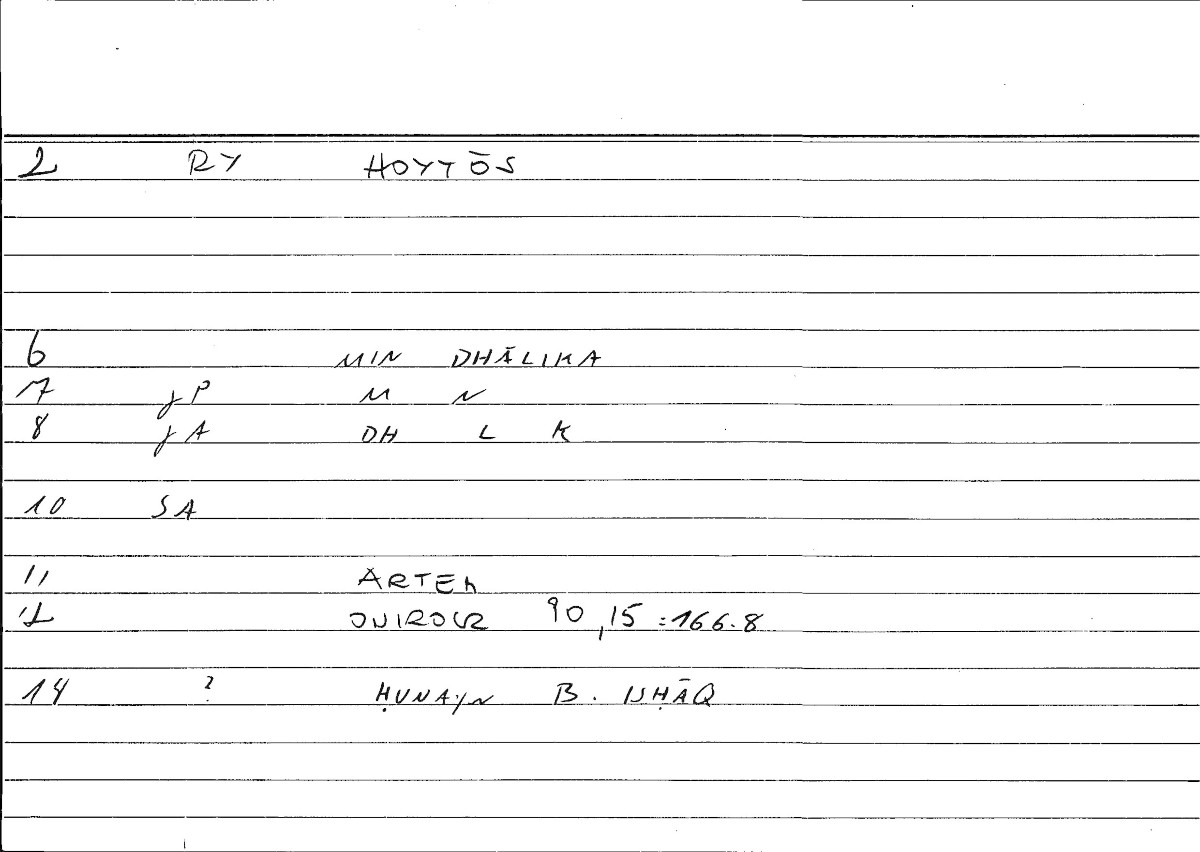 2 RY HOYTŌS
6 MIN DHĀLIKA
7 jP M N
8 jA DH L K
10 SA
11 ARTEM
12 ONIROCR 90,15:166.8
14 ? ḤUNAYN B. ISḤĀQ